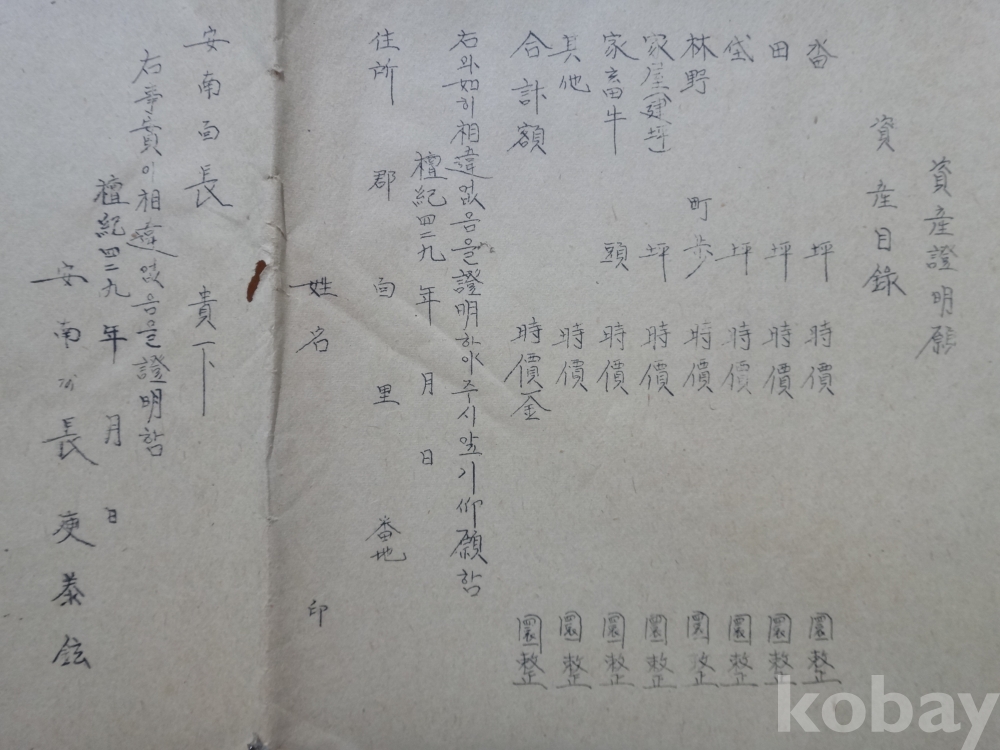 資産證明願
資産目錄
畓 坪 時價 圜整
田 坪 時價 圜整
垈 坪 時價 圜整
林野 町步 時價 圜整
家屋(建坪) 坪 時價 圜整
家畜牛 頭 時價 圜整
其他 時價 圜整
合計額 時價金 圜整
右와如히相違없음을證明하야주시압기仰願함
檀紀四二九 年 月 日
住所 郡 面 里 番地
姓名 印
安南面長 貴下
右 이相違없음을證明함
檀紀四二九 年 月 日
安南面長 泰鉉
kobay